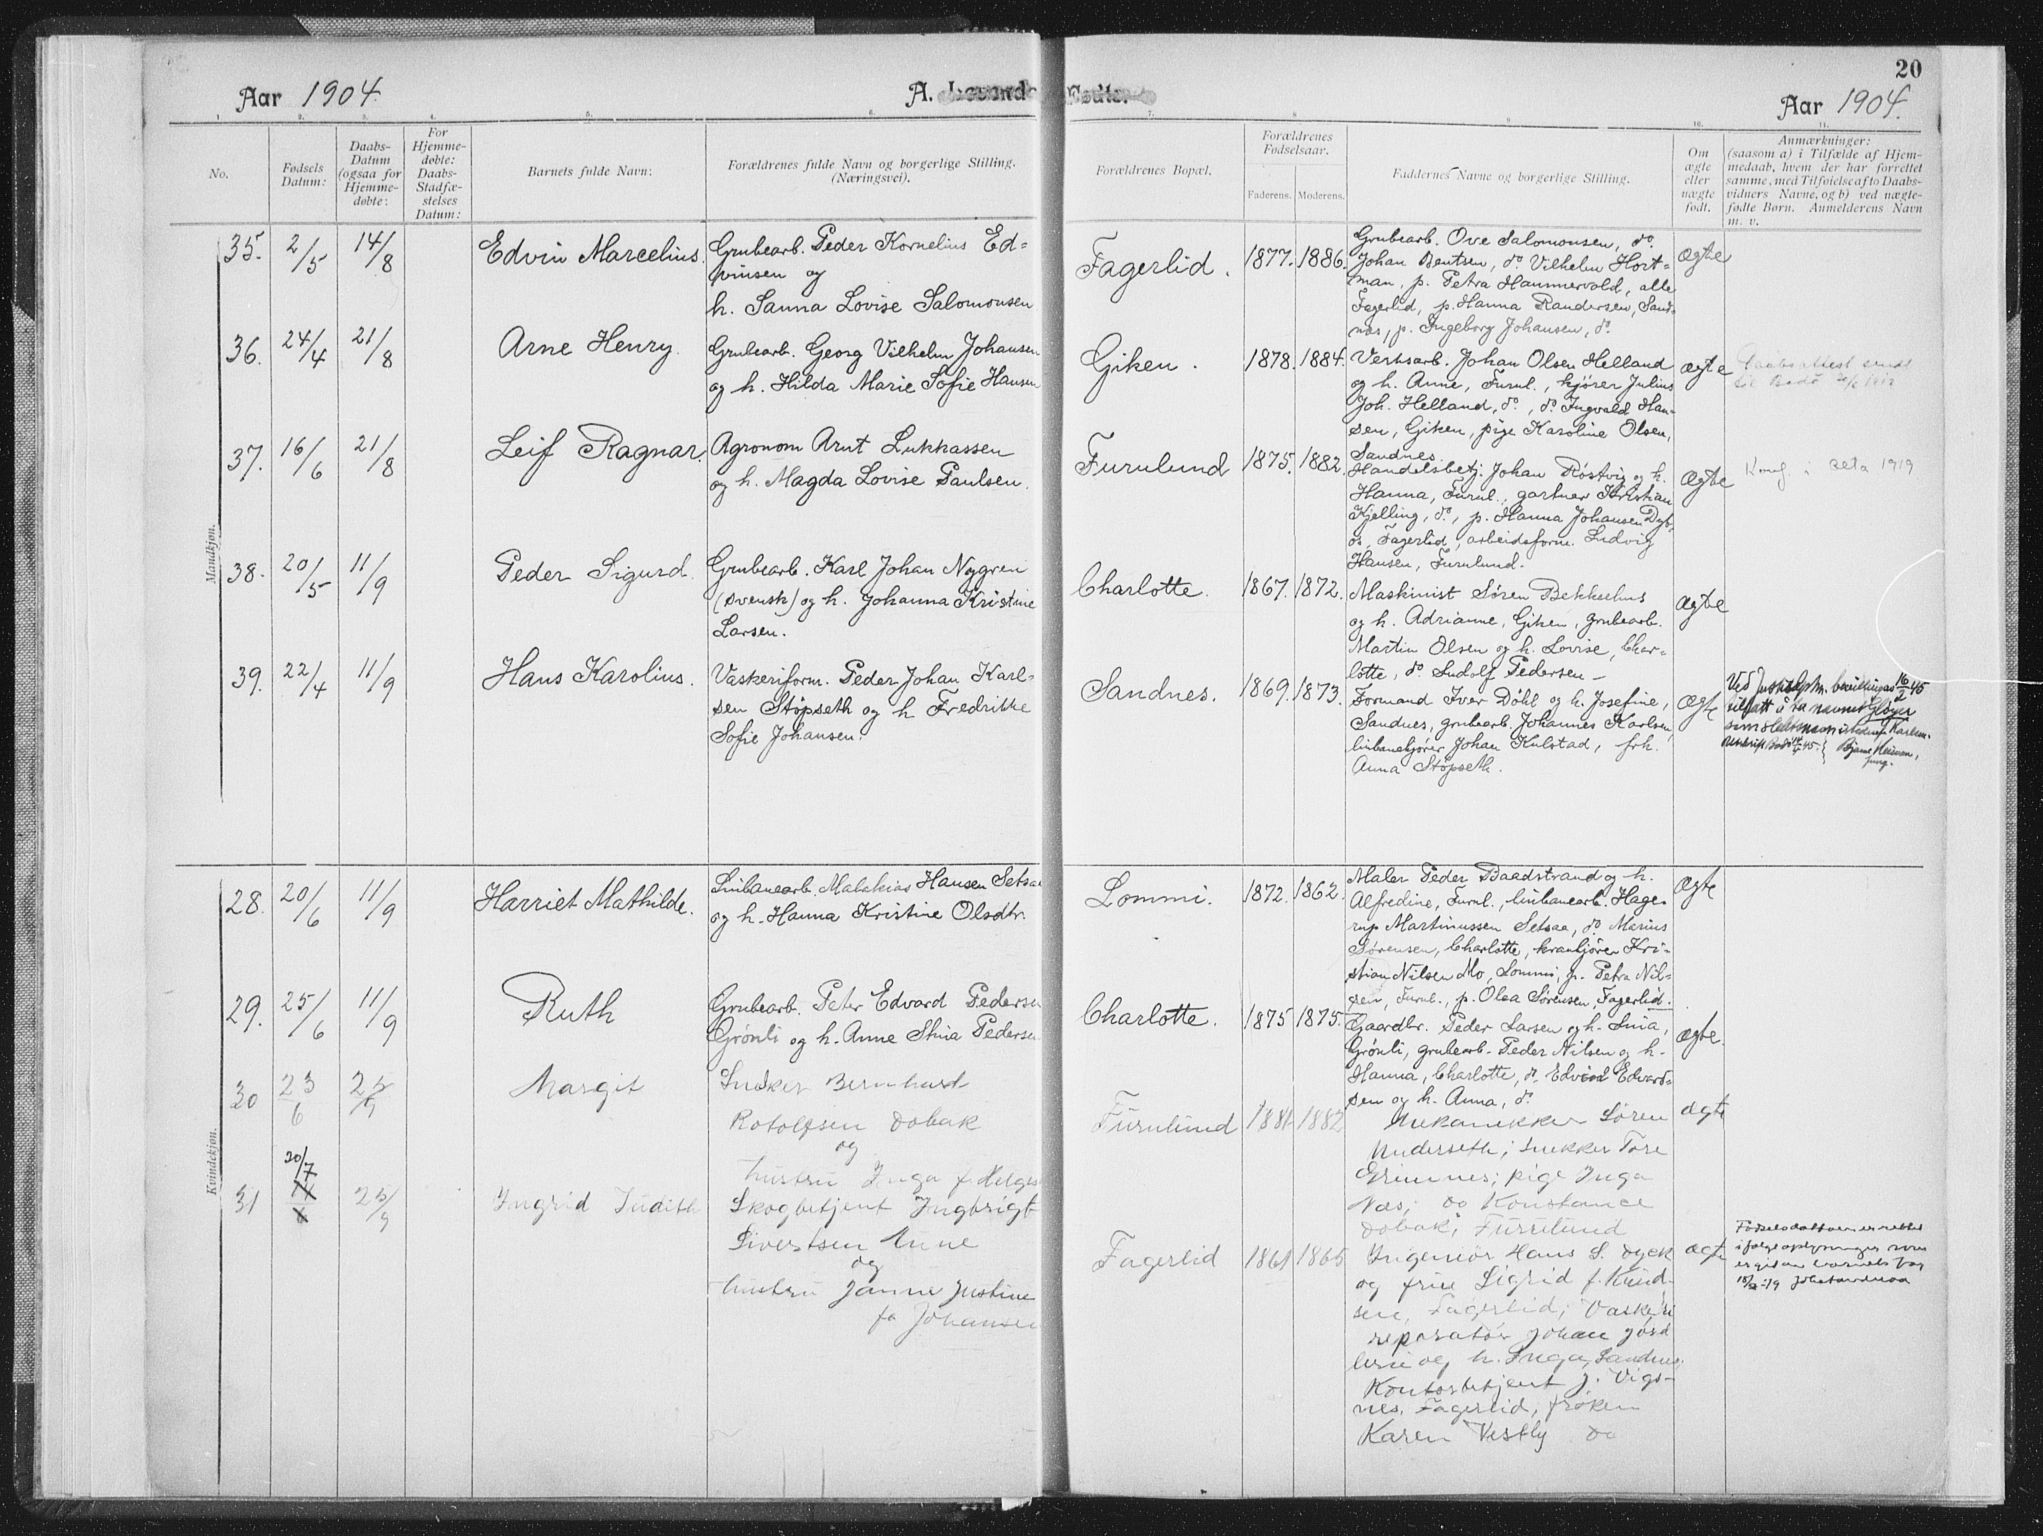 Aar 1904.
A. Levende Fødte.
20
Aar 1904.
1. 2. 3. 4. 5. 6. 7. 8 9. 10. 11.
No.
Fødsels
Datum:
Daabs-
Datum
(ogsaa for
Hjemme-
døbte:
For
Hjemme-
døbte:
Daabs-
Stadfæ-
stelses
Datum:
Barnets fulde Navn:
Forældrenes fulde Navn og borgerlige Stilling.
(Næringsvei).
Forældrenes Bopæl.
Forældrenes
Fødselsaar.
Faderens. Moderens.
Faddernes Navne og borgerlige Stilling.
Om
ægte
eller
uægte
født.
Anmærkninger:
(saasom a) i Tilfælde af Hjem-
medaab, hvem der har forrettet
samme, med Tilføielse af to Daabs-
vidners Navne, og b) ved uægte-
fødte Børn. Anmelderens Navn
m. v.
Mandkjøn.
35. 2/5 14/8 Edvin Marcelius.
Grubearb. Peder Kornelius Ed=
vinsen og
h. Sanna Lovise Salomonsen
Fagerlid. 1877. 1886.
Grubearb. Ove Salomonsen, do.
Johan Bentsen, do. Vilhelm Hort=
man, p. Petra Hammervold, alle
Fagerlid, p. Hanna Randersen, Sand-
nes, p. Ingeborg Johansen, do.
ægte
36. 24/4 21/8 Arne Henry.
Grubearb. Georg Vilhelm Johansen
og h. Hilda Marie Sofie Hansen
Giken. 1878. 1884.
Verksarb. Johan Olsen Helland
og h. Anne, Furul., kjører Julius
Joh. Helland, do., do. Ingvald Han-
sen, Giken, pige Karoline Olsen,
Sandnes.
ægte
Daabsattest sendt
til Bodø
37. 16/6 21/8 Leif Ragnar.
Agronom Arnt Lukkassen
og h. Magda Lovise Paulsen.
Furulund 1875. 1882.
Handelsbetj. Johan Røstvig og h.
Hanna, Furul., gartner Kristian
Kjelling, do., p. Hanna Johansen Dyb-
os, Fagerlid, arbeidsform. Ludvig
Hansen, Furulund.
ægte
Konf. i 1919
38. 20/5 11/9 Peder Sigurd.
Grubearb. Karl Johan Nygren
(svensk) og h. Johanna Kristine
Larsen.
Charlotte. 1867. 1872.
Maskinist Søren Bekkehus
og h. Adrianne, Giken, grubearb.
Martin Olsen og h. Lovise, Char-
lotte, do. Ludolf Pedersen -
ægte
39. 22/4 11/9 Hans Karolius.
Vaskeriform. Peder Johan Karl-
sen Støpseth og h. Fredrikke
Sofie Johansen.
Sandnes. 1869. 1873.
Formand Iver Döhl og h. Josefine,
Sandnes, grubearb. Johannes Karlsen,
linbanekjører Johan Kulstad, frk.
Anna Støpseth.
ægte
Kvindekjøn.
28. 20/6 11/9 Harriet Mathilde.
Linbanearb. Malakias Hansen Setsaa
og h. Hanna Kristine Olsdtr.
Lommi. 1872. 1862.
Maler Peder Baadstrand og h.
Alfredine, Furul., linbanearb. Hage-
rup Martinussen Setsaa, do. Marius
Sørensen, Charlotte, krankjører Kri-
stian Nilsen Mo, Lommi, p. Petra Nil-
sen, Furul., p. Olea Sørensen, Fagerlid.
ægte
29. 25/6 11/9 Ruth
Grubearb. Peter Edvard Pedersen
Grønli og h. Anne Stina Pedersen
Charlotte. 1875 1875.
Gaardbr. Peder Larsen og h. Lina,
Grønli, grubearb. Peder Nilsen og h.
Hanna, Charlotte, do. Edvard Edvard-
sen og h. Anna, do.
ægte.
30 23/6 25/9 Margit
Snekker Bernhard
Rotolfsen Dobak
og
hustru Inga f. Helges
Furulund 1881 1882
Mekanikker Søren
Anderseth; snekker Tore
Grimnes; pige Inga
Næs; do Konstance
Dobak; Furulund
ægte
31 20/7 25/9 Ingrid Judith
Skogbetjent Ingbrigt
Sivertsen Aune
og
hustru Janna Justine
fø Johansen
Fagerlid 1861 1865
Ingeniør Hans S. Dyck
og frue Sigrid f. Knud-
sen, Fagerlid; Vaskeri
reparatør Johan Jord
og h. Inga, Sandnes.
Kontorbetjent J. Vigs-
nes, Fagerlid, frøken
Karen Vestby do
ægte
Fødselsdatoen er rettet
ifølge oplysninger som
er git av barnets far